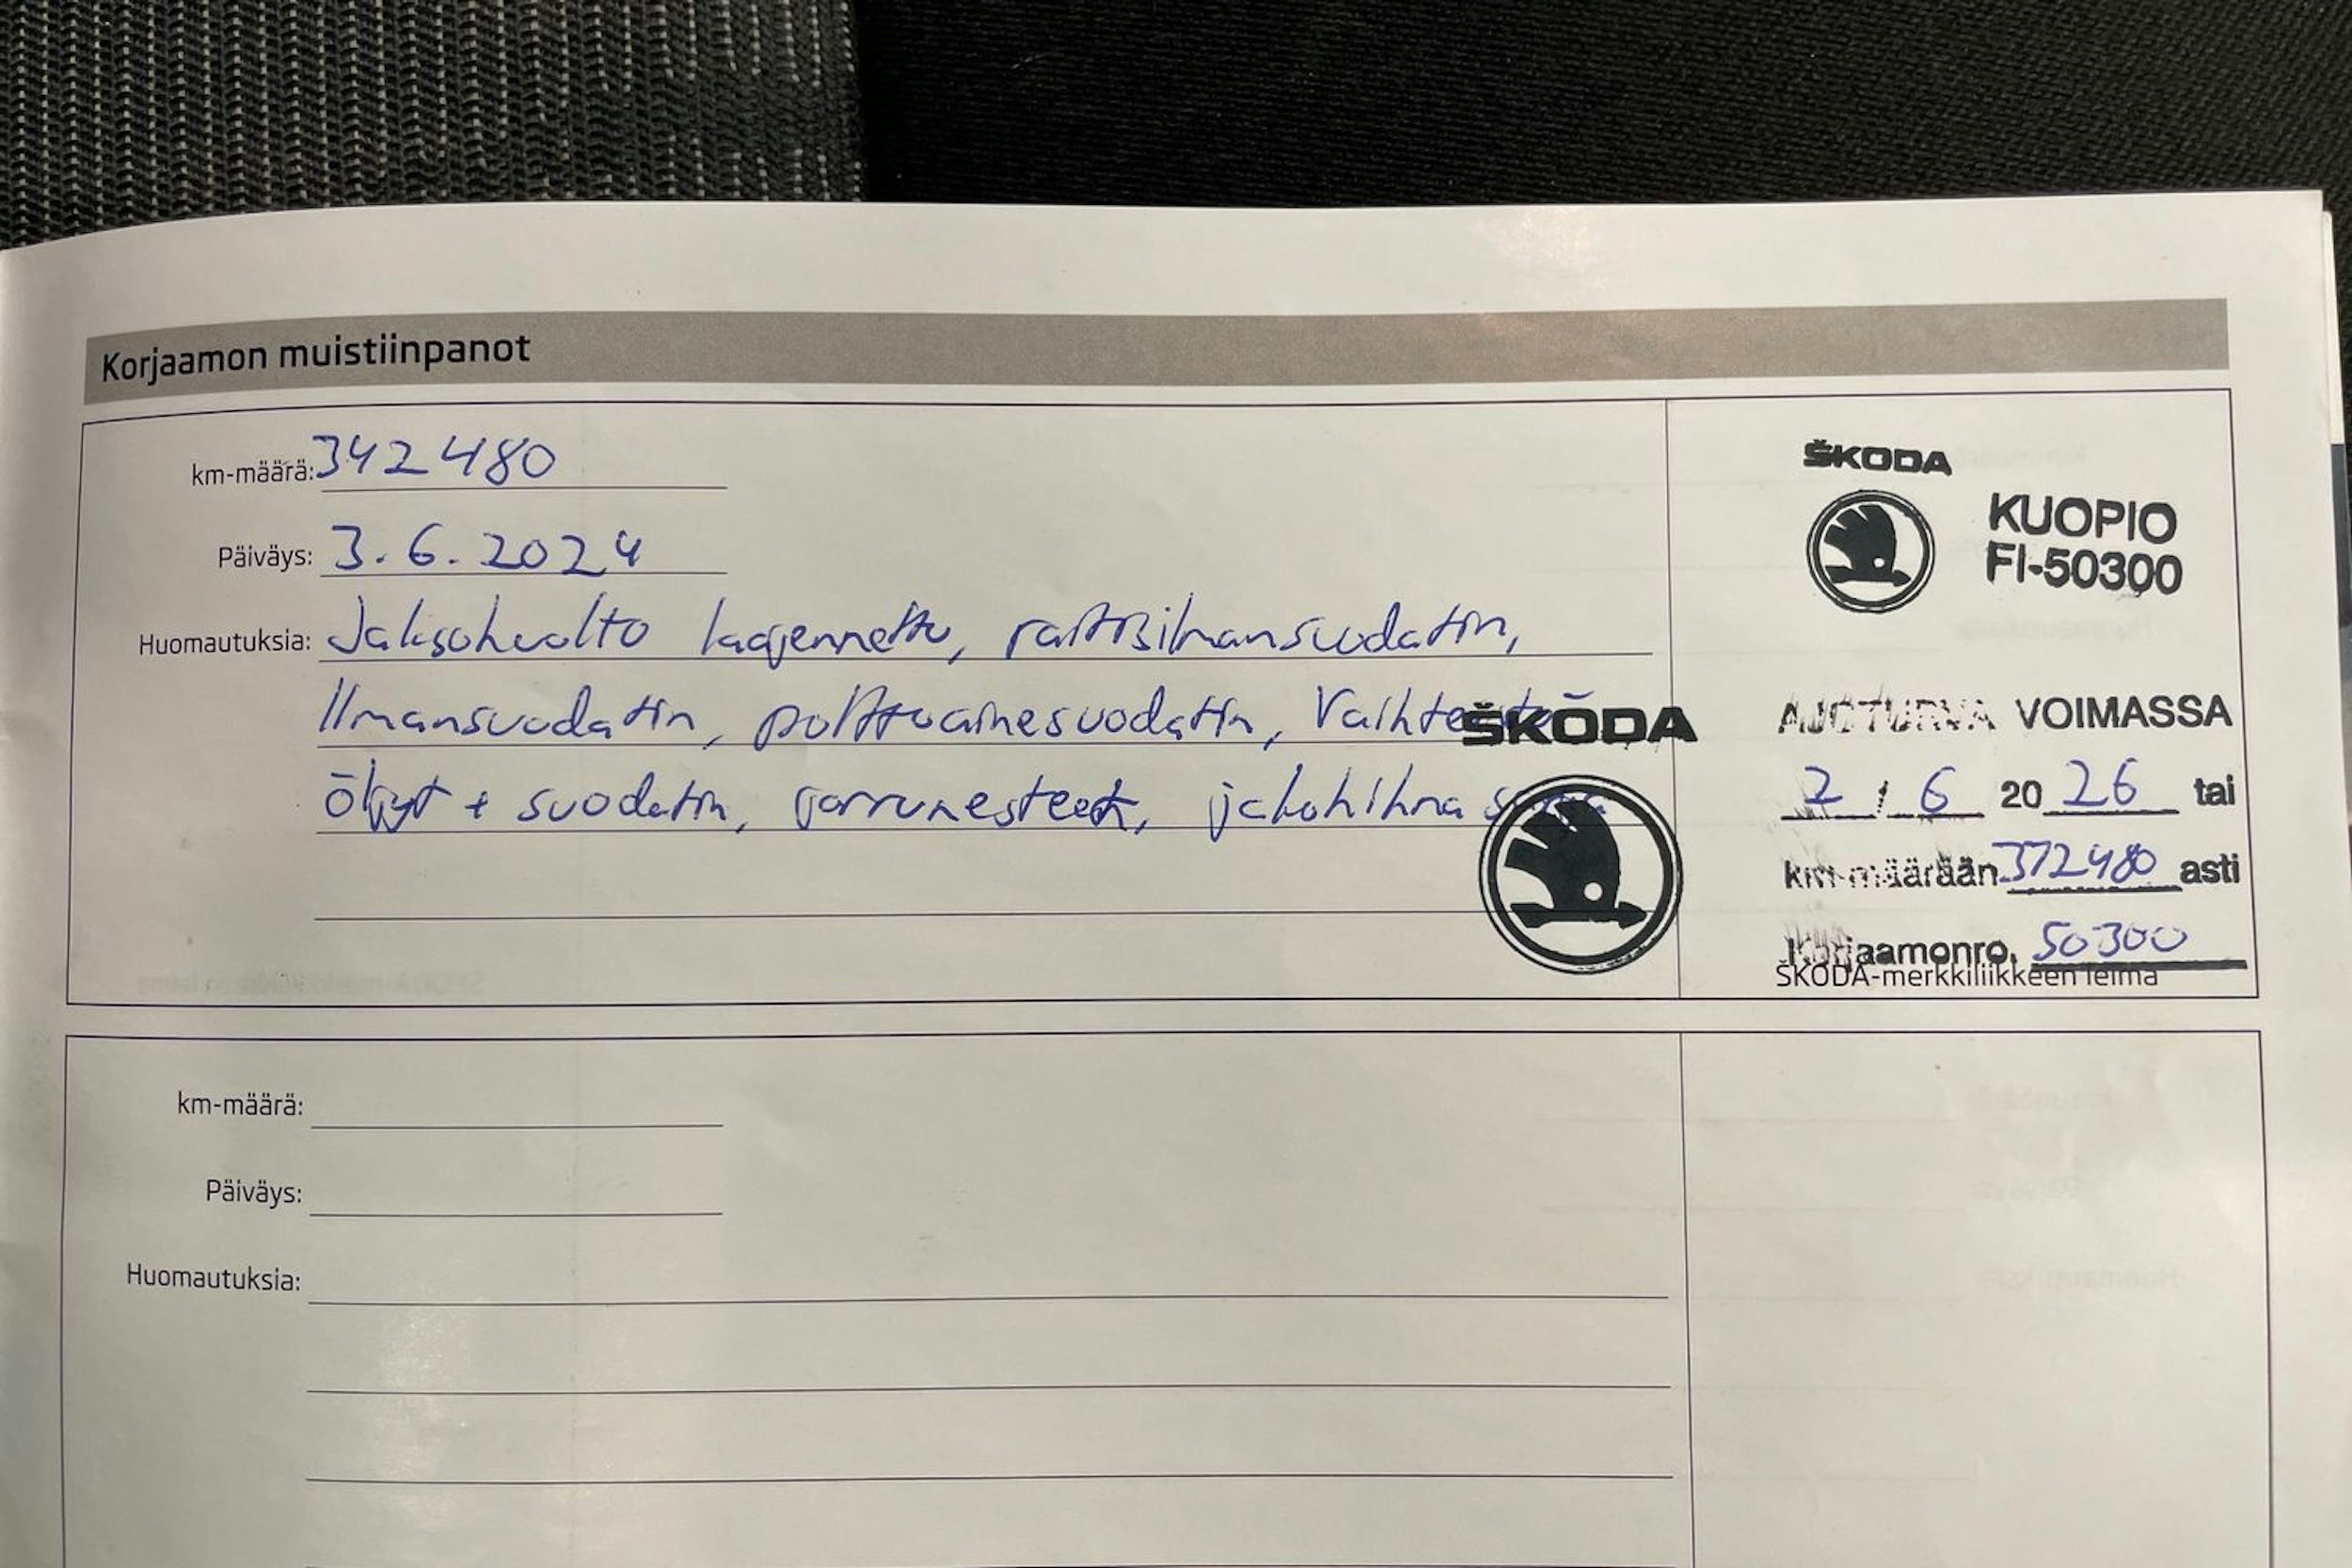 Korjaamon muistiinpanot
km-määrä: 342 480
Päiväys: 3.6.2024
Huomautuksia: Jaksohuolto laajennettu, raitisilmansuodatin,
Ilmansuodatin, polttoainesuodatin, Vaihteisto
öljyt + suodatin, jarrunesteet, jakohihna sarja
ŠKODA
ŠKODA
KUOPIO
FI-50300
AJOTURVA VOIMASSA
2 / 6 20 26 tai
km-määrään 372480 asti
Korjaamonro. 50300
ŠKODA-merkkiliikkeen leima
km-määrä:
Päiväys:
Huomautuksia: